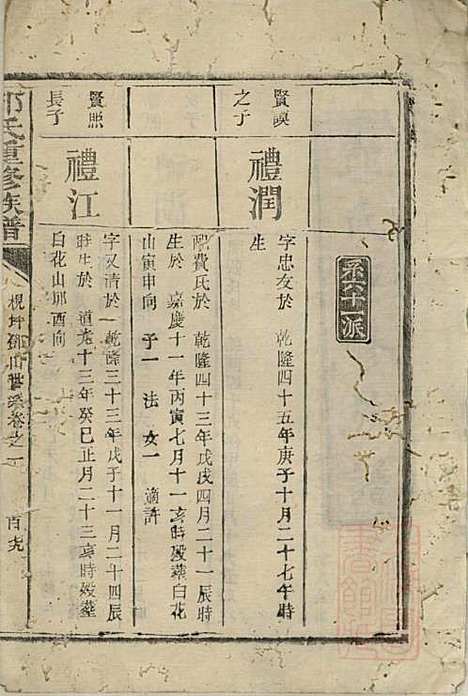 系六十一派
賢謨之子
禮潤
字忠友於 乾隆四十五年庚子十月二十七午時
生
配費氏於 乾隆四十三年戊戌四月二十一辰時
生於 嘉慶十一年丙寅七月十一亥時殁葬白花
山寅申向 子一 法 女一 適許
賢照長子
禮江
字又清於 乾隆三十三年戊子十一月二十四辰
時生於 道光十三年癸巳正月二十三亥時殁葬
白花山卯酉向
氏重修族譜
世系卷之一
百